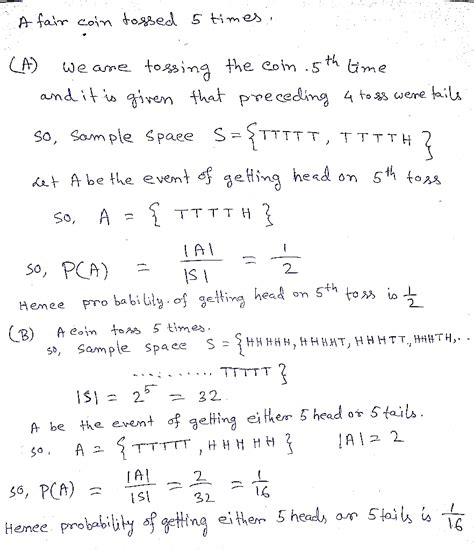 A fair coin tossed 5 times.
(A) we are tossing the coin .5th time
and it is given that preceding 4 toss were tails
so, sample space S = {TTTTT, TTTTH}
Let A be the event of getting head on 5th toss
so, A = { TTTTH }
so, P(A) = |A| / |S| = 1/2
Hence probability of getting head on 5th toss is 1/2
(B) A coin toss 5 times.
so, sample space S = {HHHHH, HHHHT, HHHTT, HHHTH,..
......... TTTTT }
|S| = 2^5 = 32
A be the event of getting either 5 head or 5 tails.
so, A = { TTTTT, HHHHH } |A| = 2
so, P(A) = |A| / |S| = 2/32 = 1/16
Hence probability of getting either 5 heads or 5 tails is 1/16